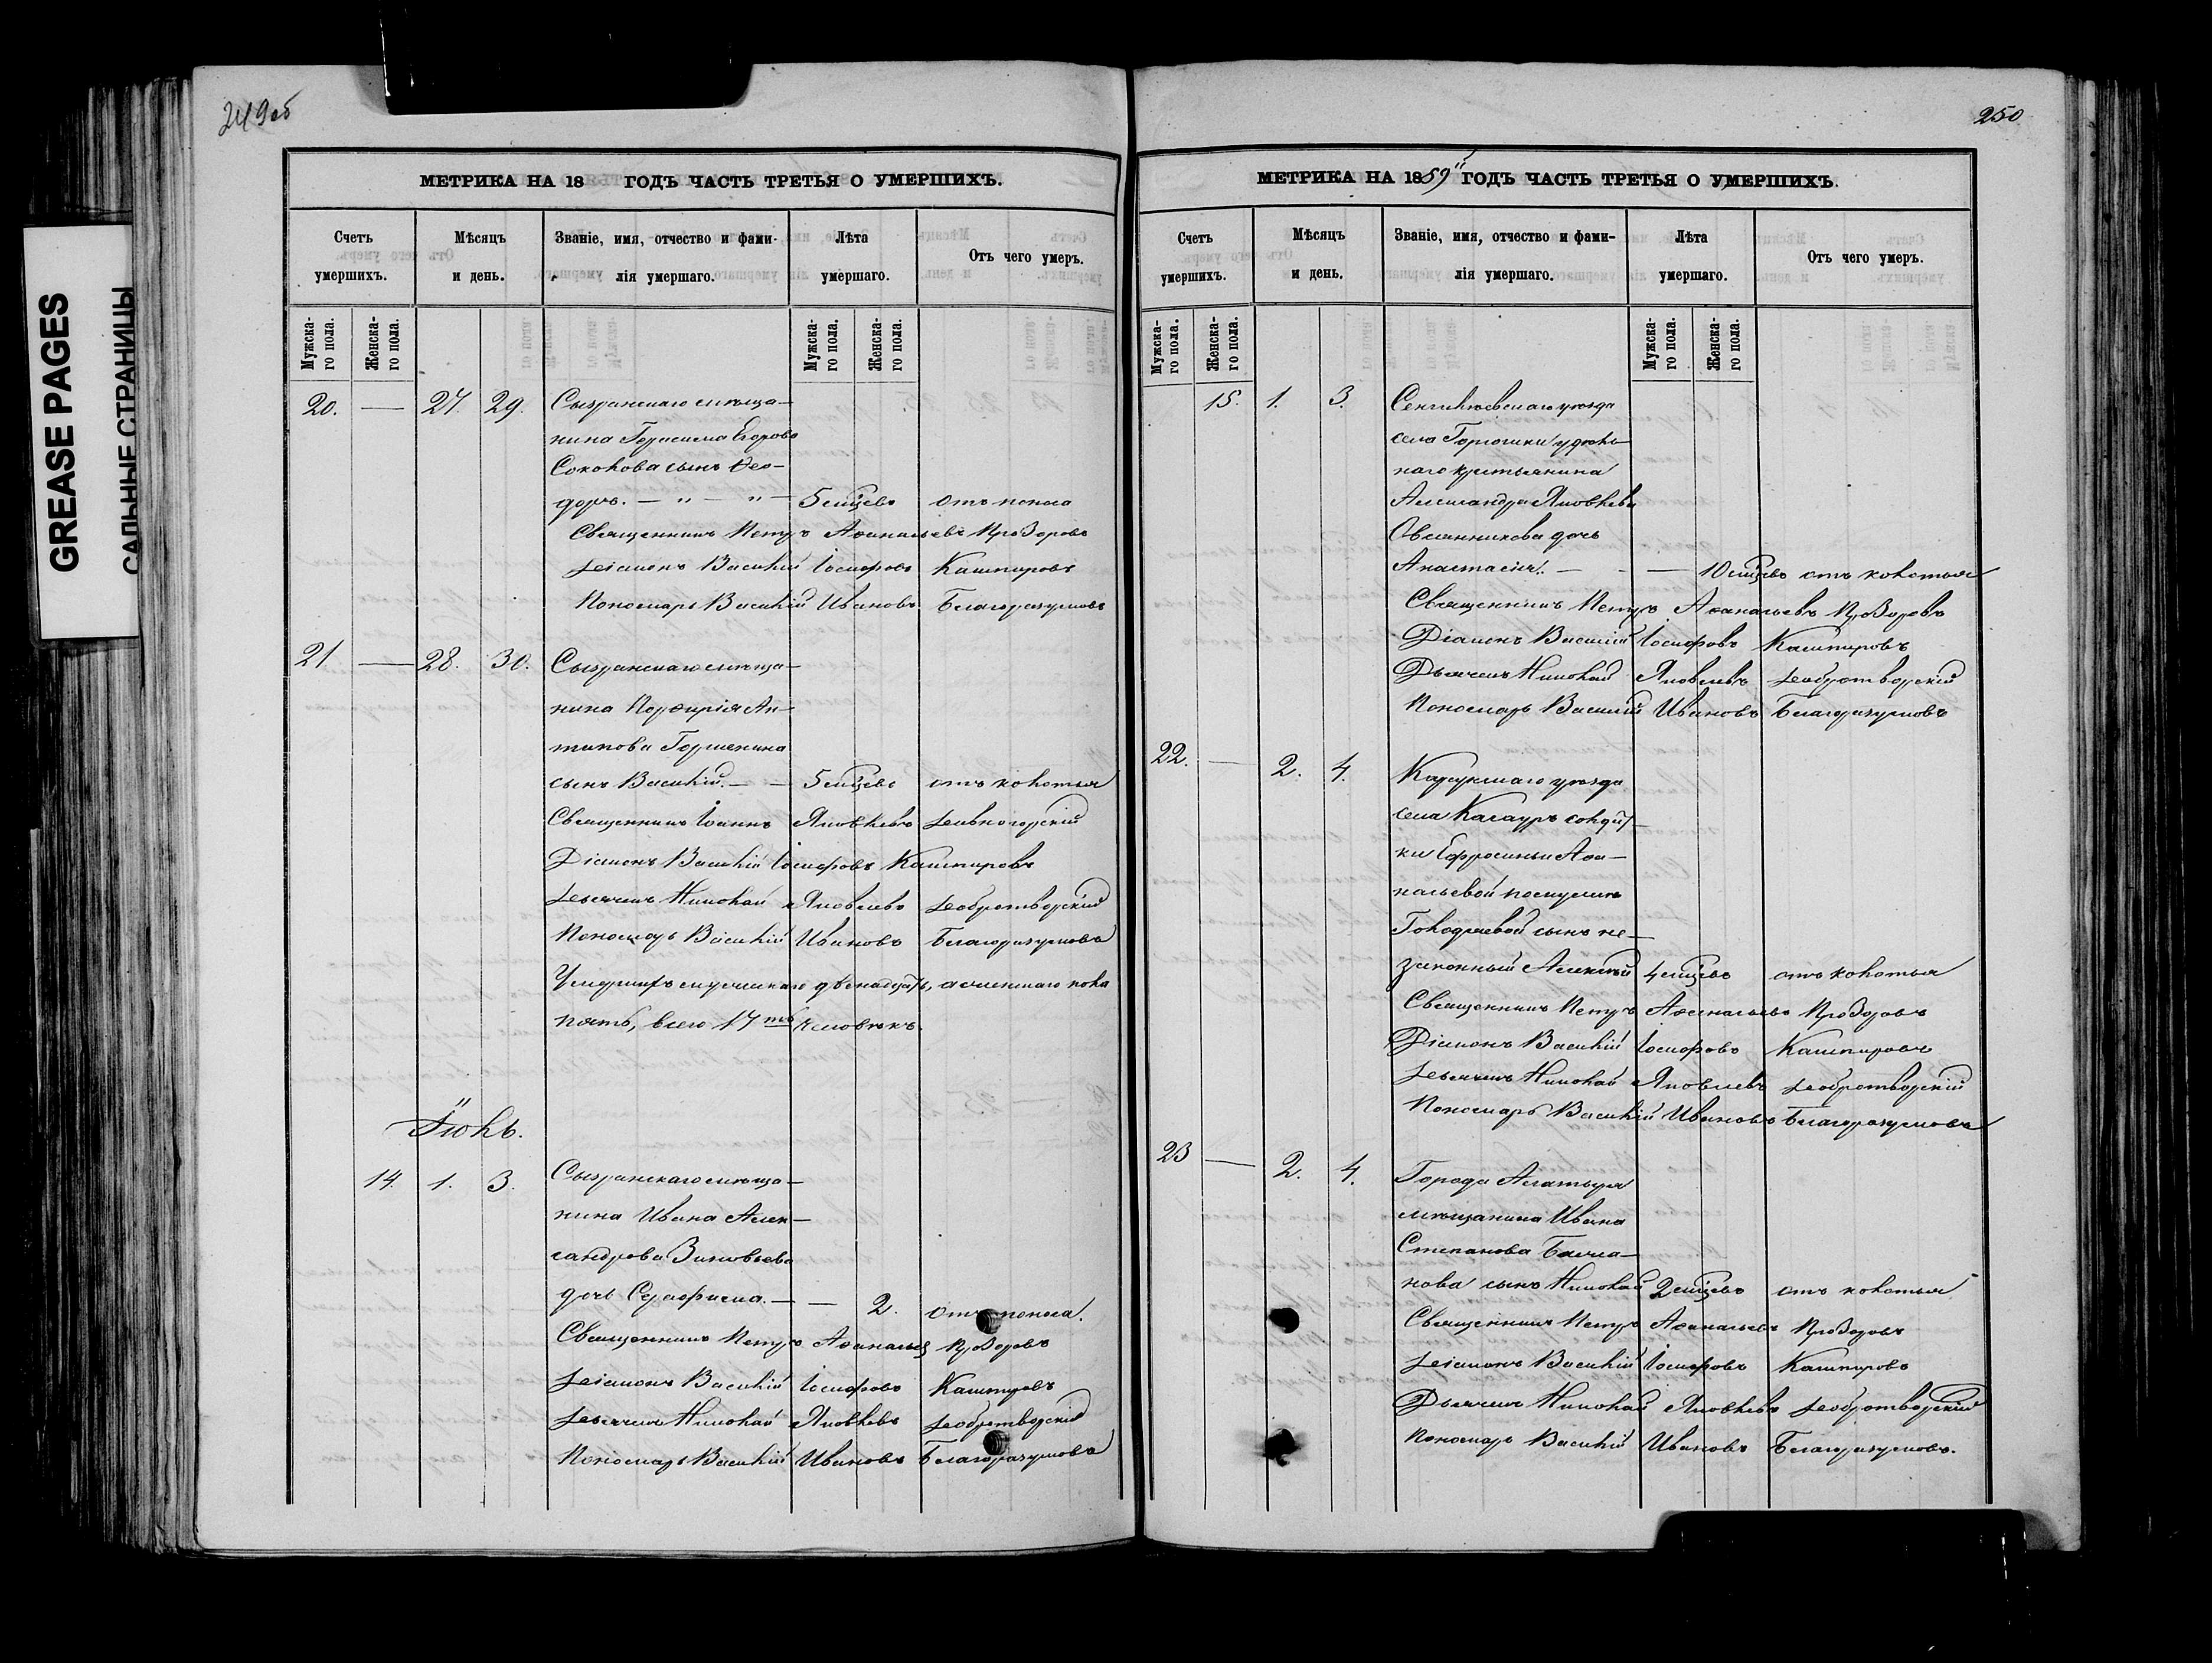 249об
МЕТРИКА НА 18 ГОДЪ ЧАСТЬ ТРЕТЬЯ О УМЕРШИХЪ.
Счетъ умершихъ.
Мѣсяцъ и день.
Званіе, имя, отчество и фамилія умершаго.
Лѣта умершаго.
Отъ чего умеръ.
Мужска-го пола.
Женска-го пола.
Мужска-го пола.
Женска-го пола.
20. — 27. 29. Сызранскаго мѣща-
нина Герасима Егорова
Соколова сынъ Ѳео-
доръ. — " — " — 5 мѣсѣцевъ отъ поноса
Священникъ Петръ Аѳанасьевъ Прозоровъ
Діаконъ Василій Іосифовъ Кашпировъ
Пономарь Василій Ивановъ Благоразумовъ
21 — 28. 30. Сызранскаго мѣща-
нина Порфирія Ан-
типова Горшенина
сынъ Василій. — — 5 мѣсѣцевъ отъ колотья
Священникъ Іоаннъ Яковлевъ Дивногорскій
Діаконъ Василій Іосифовъ Кашпировъ
Дьячекъ Николай Яковлевъ Добротворскій
Пономарь Василій Ивановъ Благоразумовъ
Умершихъ мужескаго двенадцать, а женскаго пола
пять, всего 17ть человѣкъ.
Іюль.
14. 1. 3. Сызранскаго мѣща-
нина Ивана Алек-
сандрова Зиновьева
дочь Серафима. — — 2. отъ поноса.
Священникъ Петръ Аѳанасьевъ Прозоровъ
Діаконъ Василій Іосифовъ Кашпировъ
Дьячекъ Николай Яковлевъ Добротворскій
Пономарь Василій Ивановъ Благоразумовъ
250
МЕТРИКА НА 1859 ГОДЪ ЧАСТЬ ТРЕТЬЯ О УМЕРШИХЪ.
Счетъ умершихъ.
Мѣсяцъ и день.
Званіе, имя, отчество и фамилія умершаго.
Лѣта умершаго.
Отъ чего умеръ.
Мужска-го пола.
Женска-го пола.
Мужска-го пола.
Женска-го пола.
15. 1. 3. Сенгилѣевскаго уѣзда
села Горюшки удѣль-
наго крестьянина
Александра Яковлева
Овсянникова дочь
Анастасія. — — — 10 мѣсѣцевъ отъ колотья
Священникъ Петръ Аѳанасьевъ Прозоровъ
Діаконъ Василій Іосифовъ Кашпировъ
Дьячекъ Николай Яковлевъ Добротворскій
Пономарь Василій Ивановъ Благоразумовъ
22. — 2. 4. Карсунскаго уѣзда
села Касауръ солдат-
ки Ефросиньи Аѳа-
насьевой по мужѣ
сынъ не-
законный Алексѣй 4 мѣсѣцевъ отъ колотья
Священникъ Петръ Аѳанасьевъ Прозоровъ
Діаконъ Василій Іосифовъ Кашпировъ
Дьячекъ Николай Яковлевъ Добротворскій
Пономарь Василій Ивановъ Благоразумовъ
23 — 2. 4. Города Алатыря
мѣщанина Ивана
Степанова
сынъ Николай 2 мѣсѣцевъ отъ колотья
Священникъ Петръ Аѳанасьевъ Прозоровъ
Діаконъ Василій Іосифовъ Кашпировъ
Дьячекъ Николай Яковлевъ Добротворскій
Пономарь Василій Ивановъ Благоразумовъ.
GREASE PAGES
САЛЬНЫЕ СТРАНИЦЫ